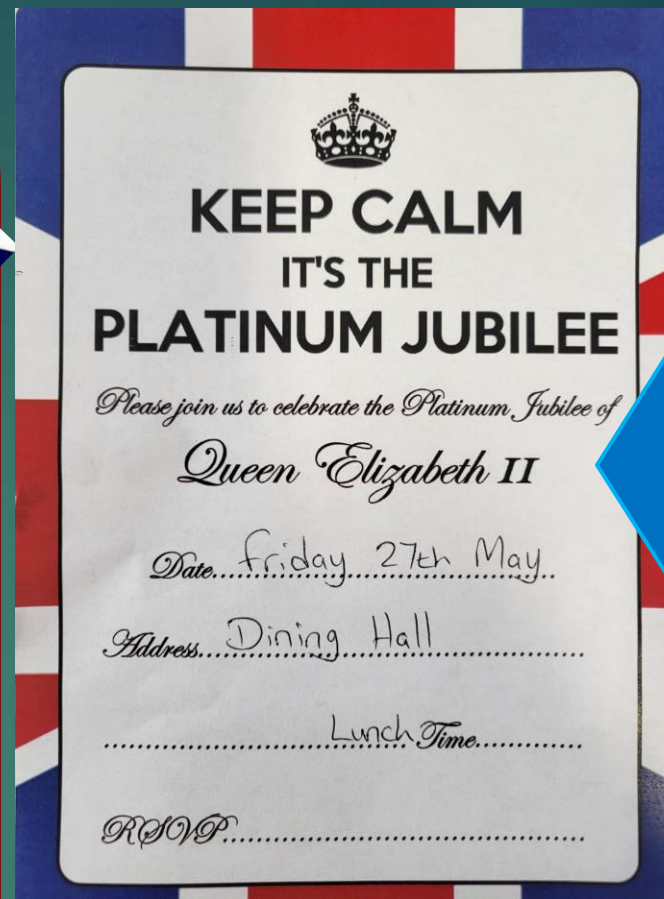 KEEP CALM
IT'S THE
PLATINUM JUBILEE
Please join us to celebrate the Platinum Jubilee of
Queen Elizabeth II
Date.....friday 27th May
Address....Dining Hall
Lunch Time
RSVP